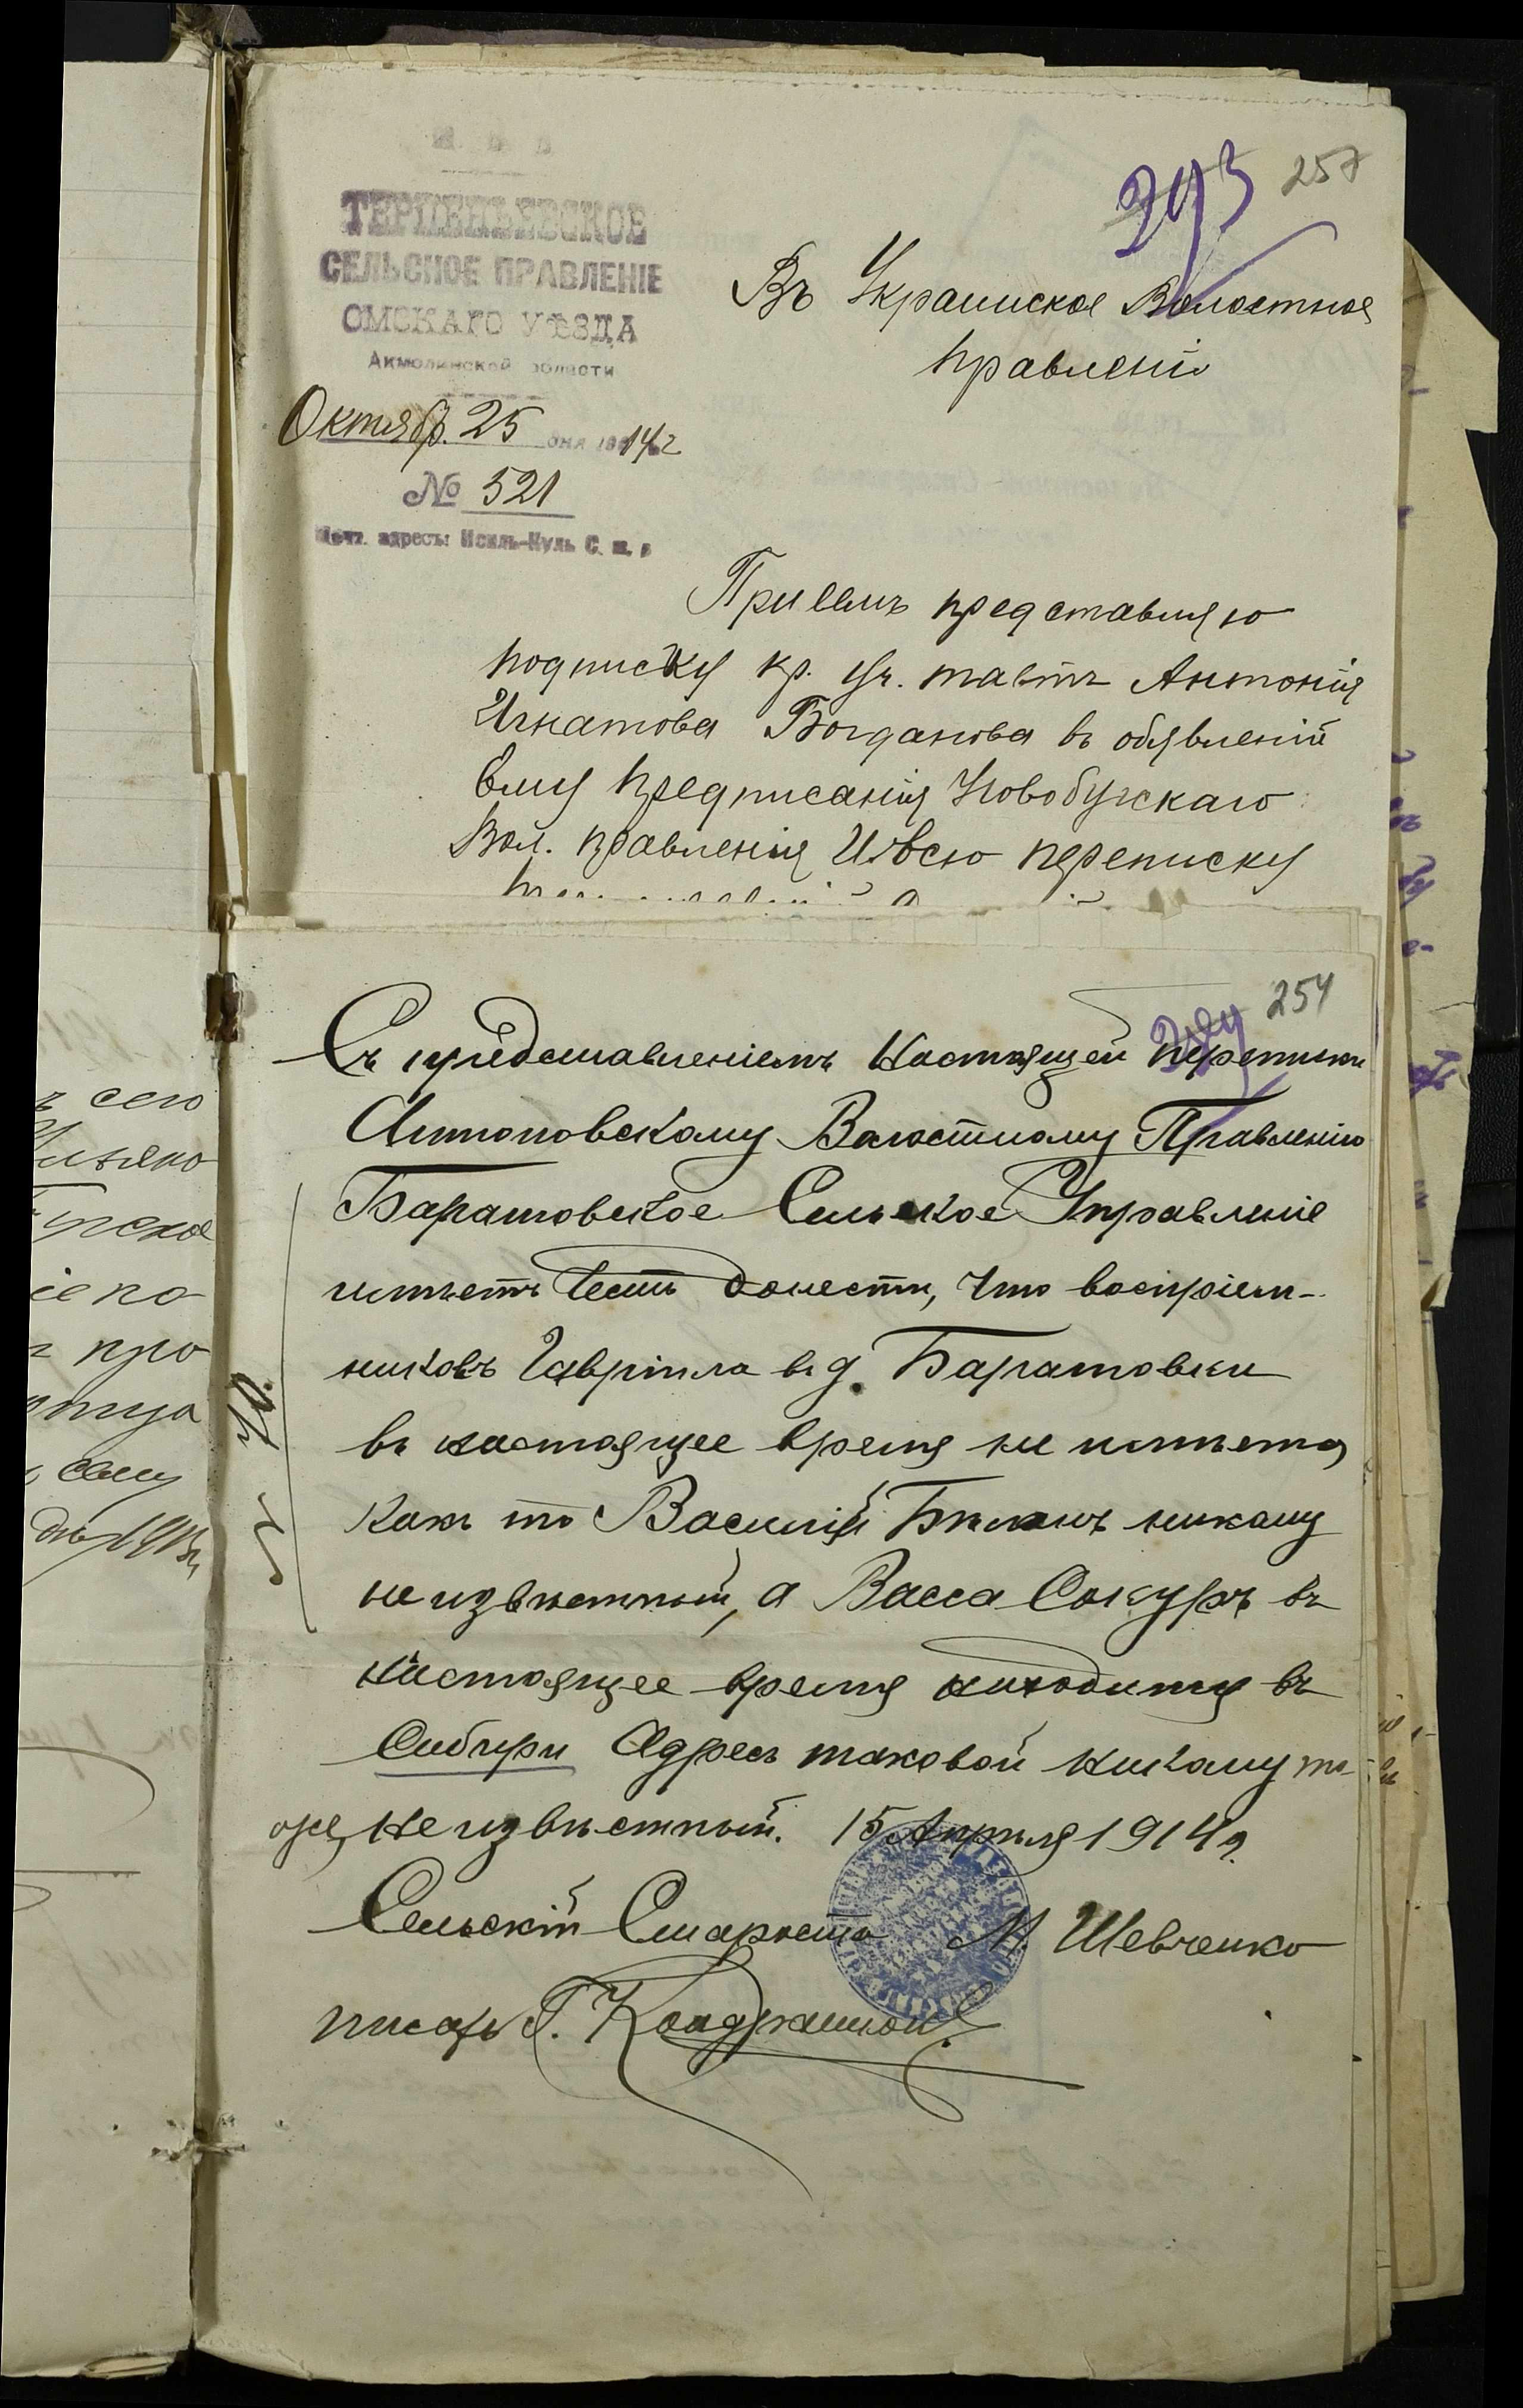 293 257
ТЕРПЕНЬЕВСКОЕ
СЕЛЬСКОЕ ПРАВЛЕНІЕ
ОМСКАГО УѢЗДА
Акмолинской области
Октябр. 25 дня 1914 г
№ 521
Почт. адресъ: Исиль-Куль С. ж. д
Въ Украинское Волостное
Правленіе
При семъ представляю
подписку кр. уч. Антонія
Игнатова Богданова въ обявленій
Ему предписанія Новобугскаго
Вол. правленія И всю переписку
254
Съ представленіемъ Настоящей переписки
Антоновскому Волостному Правленію
Баратовское Сельское Управленіе
имѣетъ Честь донести, Что воспріем-
никовъ Гавріила въ д. Баратовки
въ настоящее время не имѣется
Какъ то Василій Бѣлый никому
не извѣстный, а Васса Сокуръ въ
настоящее время находится въ
Сибири Адресъ таковой никому то-
же, Неизвѣстный. 15 Апрѣля 1914 г.
Сельскій Староста М. Шевченко
писарь Г.
ъ сего
іе по
про
сему